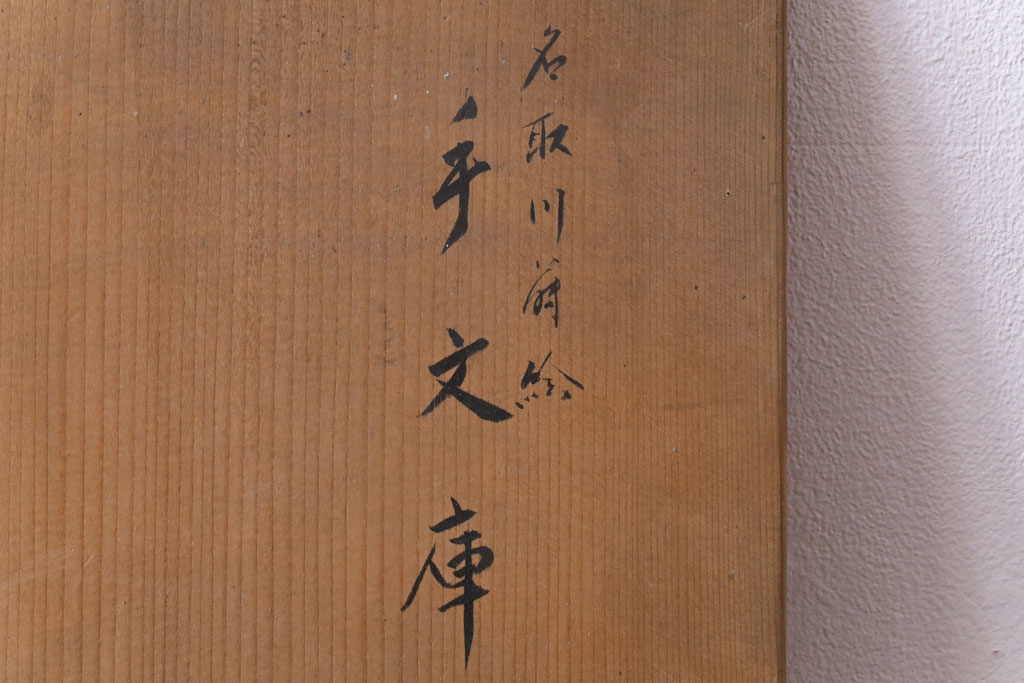 名取川蒔絵
手文庫